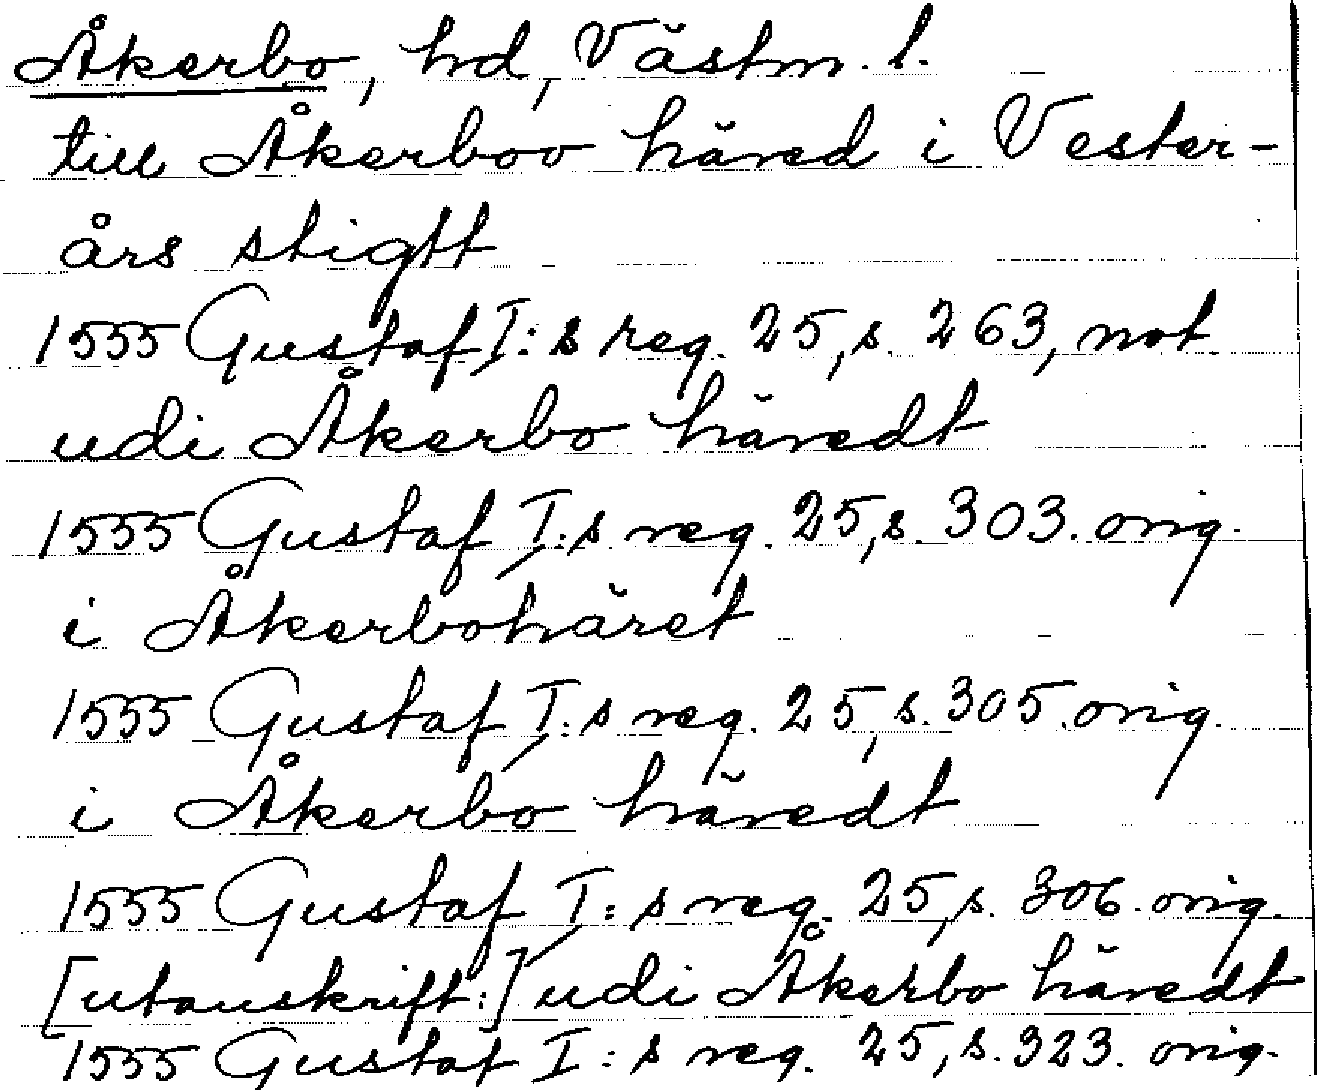 Åkerbo, hd, Västm. l.
till Åkerboo häred i Vester-
års stigtt
1555 Gustaf I:s reg. 25, s. 263, not.
udi Åkerbo häredt
1555 Gustaf I:s reg. 25, s. 303. orig.
i Åkerbohäret
1555 Gustaf I:s reg. 25, s. 305. orig.
i Åkerbo häredt
1555 Gustaf I:s reg. 25, s. 306. orig.
[utanskrift:] udi Åkerbo häredt
1555 Gustaf I:s reg. 25, s. 323. orig.